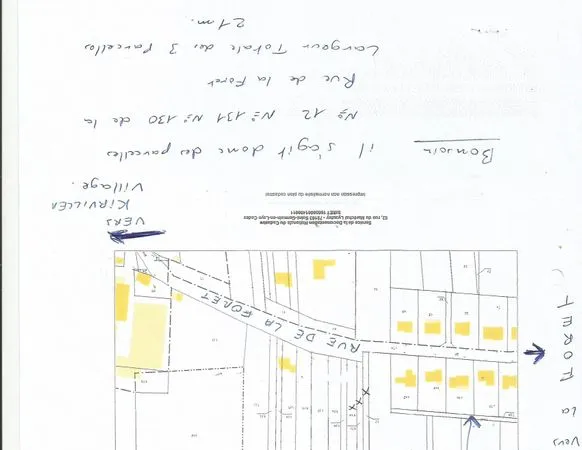 Vers
La
FORET
RUE DE LA FORET
VERS
KIRVILLER
Village.
Service de la Documentation Nationale du Cadastre
82, rue du Maréchal Lyautey - 78103 Saint-Germain-en-Laye Cedex
SIRET 16000001400011
Impression non normalisée du plan cadastral
Bonsoir
il s'agit donc des parcelles
N° 12 N° 131 N° 130 de la
Rue de la Foret
Largeur Totale des 3 Parcelles
21 m.